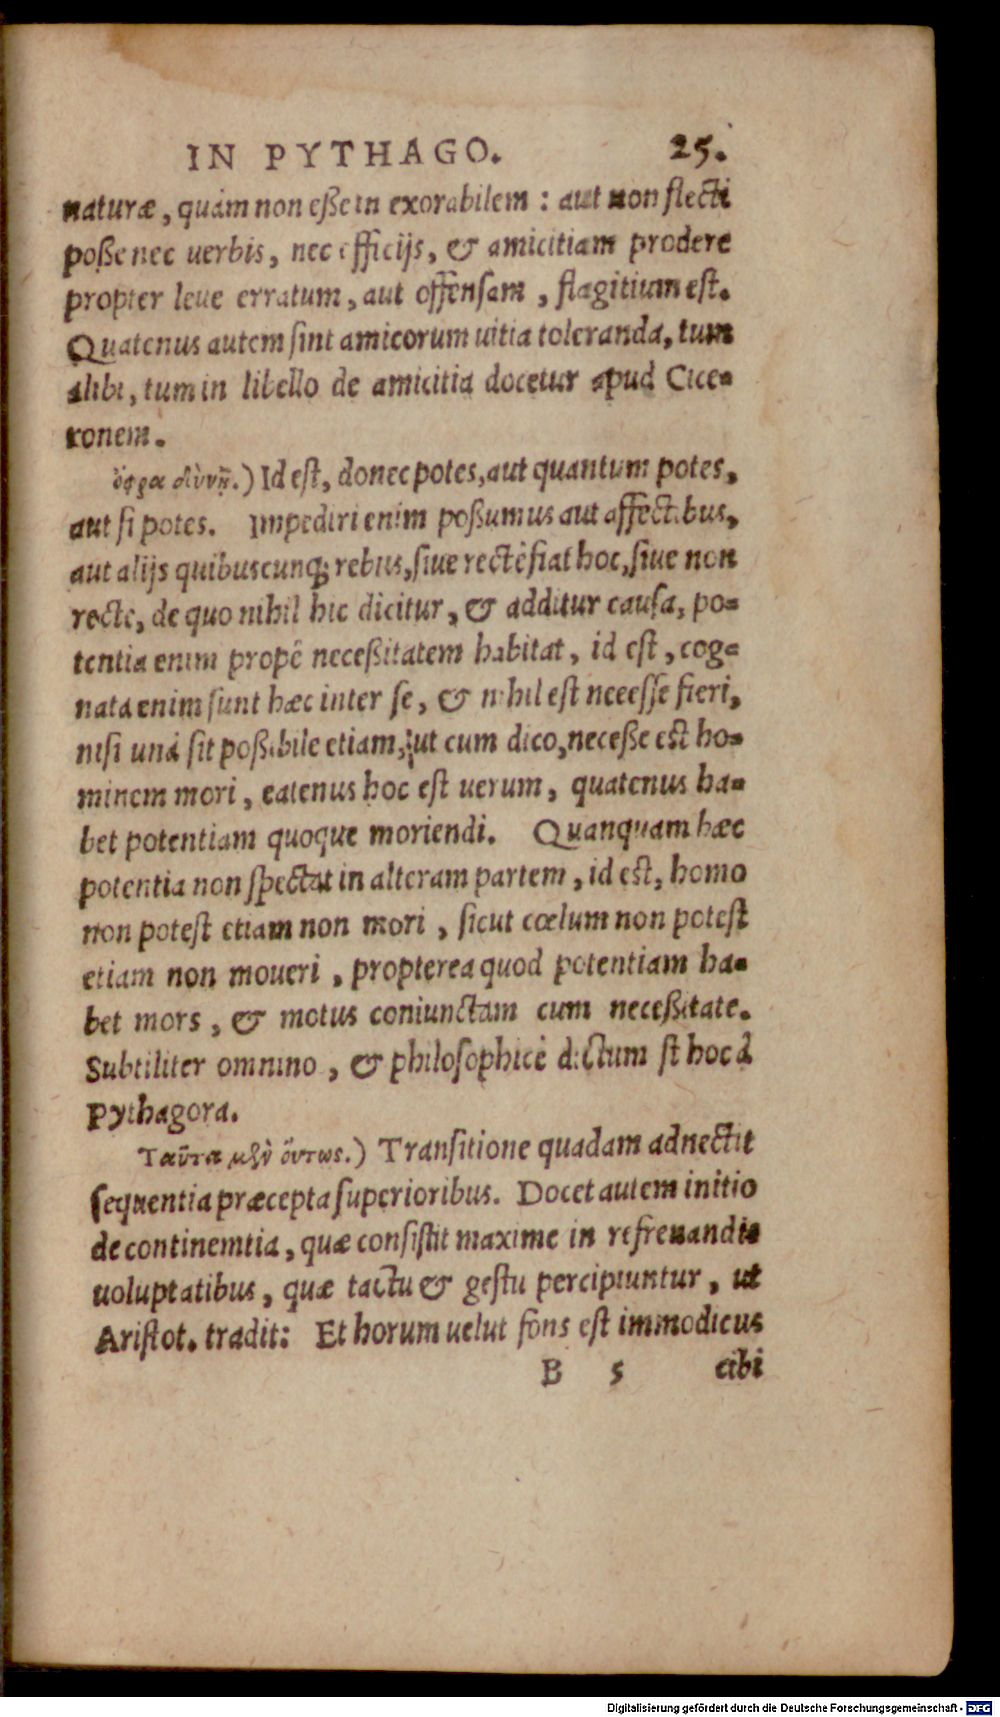 IN PYTHAGO. 25.
naturæ, quàm non eße in exorabilem : aut non flecti
poße nec uerbis, nec officijs, & amicitiam prodere
propter leue erratum, aut offensam, flagitium est.
Quatenus autem sint amicorum uitia toleranda, tum
alibi, tum in libello de amicitia docetur apud Cice-
ronem.
ὄφρα δύνῃ.) Id est, donec potes, aut quantum potes,
aut si potes. Impediri enim poßumus aut affectibus,
aut alijs quibuscunq; rebus, siue rectè fiat hoc, siue non
recte, de quo nihil hic dicitur, & additur causa, po-
tentia enim propè neceßitatem habitat, id est, cog-
nata enim sunt hæc inter se, & nihil est necesse fieri,
nisi unà sit poßibile etiam, ut cum dico, neceße est ho-
minem mori, eatenus hoc est uerum, quatenus ha-
bet potentiam quoque moriendi. Quanquam hæc
potentia non spectat in alteram partem, id est, homo
non potest etiam non mori, sicut cœlum non potest
etiam non moueri, propterea quod potentiam ha-
bet mors, & motus coniunctam cum neceßitate.
Subtiliter omnino, & philosophicè dictum st hoc à
Pythagora.
Ταῦτα μὲν οὕτως.) Transitione quadam adnectit
sequentia præcepta superioribus. Docet autem initio
de continemtia, quæ consistit maxime in refrenandis
uoluptatibus, quæ tactu & gestu percipiuntur, ut
Aristot. tradit: Et horum uelut fons est immodicus
B 5 cibi
Digitalisierung gefördert durch die Deutsche Forschungsgemeinschaft - DFG